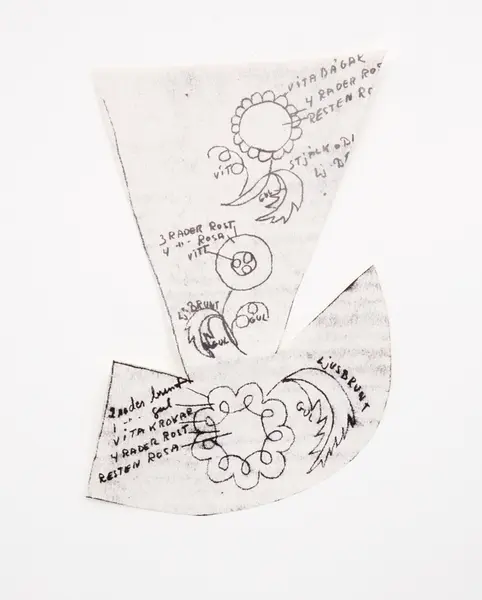 VITA BÅGAR
4 RADER ROS
RESTEN R
VIT
STJÄLK
Lj
GUL
3 RADER ROST
4 -"- ROSA
VITT
Lj BRUNT
GUL
GUL
LJUSBRUNT
GUL
2 rader brunt
1 -"- gul
VITA KROKAR
4 RADER ROST
RESTEN ROSA